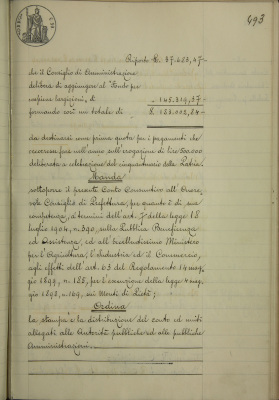 493
Riporto £. 37.483,47-
che il Consiglio di Amministrazione
delibera di aggiungere al "Fondo per
cospicue largizioni, £
- 145.319,37-
formando così un totale di
£ 183.002,84-
da destinarsi come prima quota per i pagamenti che
occorrerà fare nell'anno sull'erogazione di lire 500.000
deliberata a celebrazione del cinquantenario della Patria.
Manda
sottoporre il presente Conto Consuntivo all'Onore,
vole Consiglio di Prefettura, per quanto è di sua
competenza, a termini dell'art. della legge 18
luglio 1904, n. 390, sulla Pubblica Beneficenza
ed Assistenza, ed all'Eccellentissimo Ministero
per l'Agricoltura, l'Industria ed il Commercio,
agli effetti dell'art. 63 del Regolamento 14 mag,
gio 1899, n. 185, per l'esecuzione della legge 4 mag,
gio 1898, n. 169, sui Monti di Pietà;
Ordina
la stampa e la distribuzione del conto ed uniti
allegati alle Autorità pubbliche ed alle pubbliche
Amministrazioni.